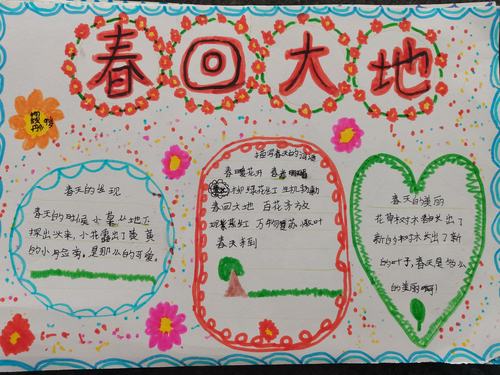 春回大地
春天的发现
春天的时候小草从地下
探出头来,小花露出了黄黄
的小身立离,是那么的可爱。
描写春天的词语
春暖花开
柳绿花红 生机勃勃
春回大地 百花齐放
万物复苏
春天来到
春天的美丽
新的树木长出了新
的叶子,春天是多么
的美丽啊!